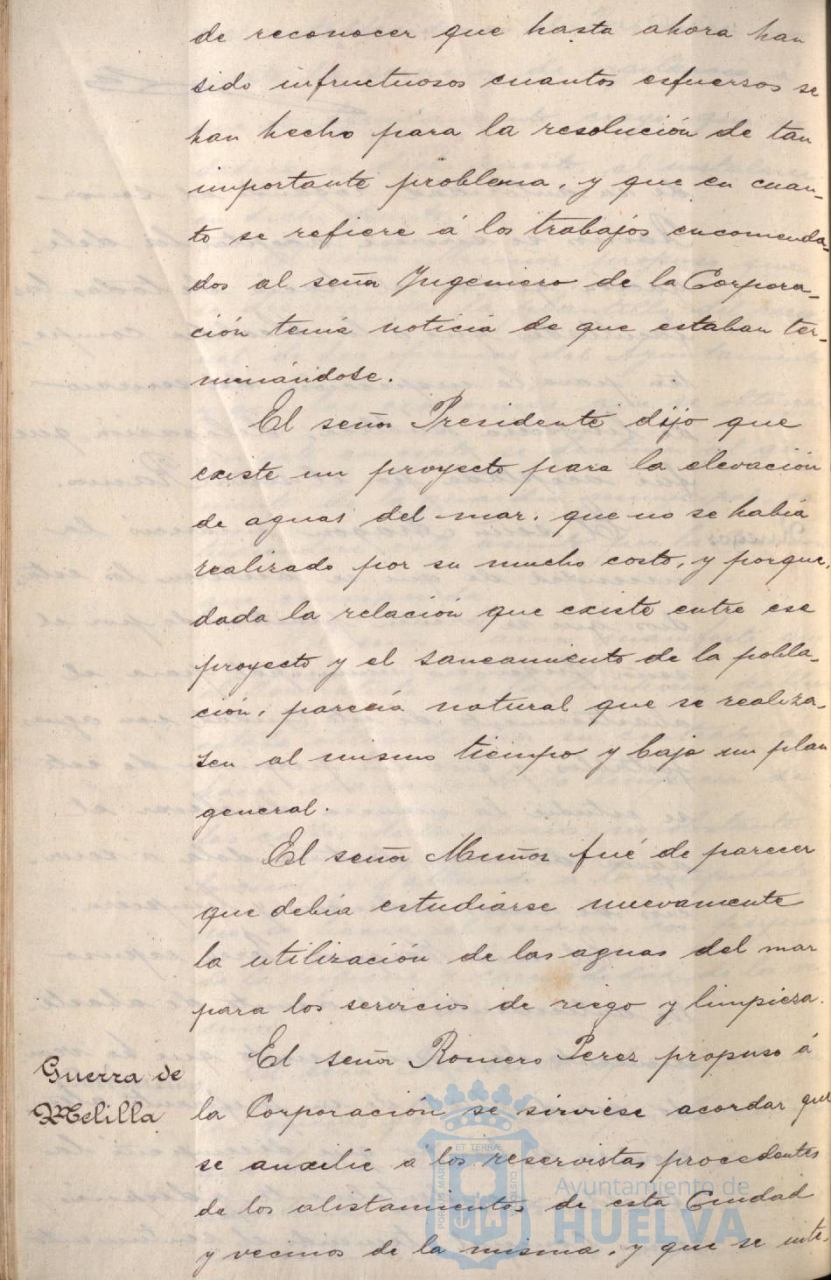 de reconocer que hasta ahora han
sido infructuosos cuantos esfuersos se
han hecho para la resolución de tan
importante problema, y que en cuan-
to se refiere á los trabajos encomenda-
dos al señor Yngeniero de la Corpora-
ción tenia noticia de que estaban ter-
minándose.
El señor Presidente dijo que
existe un proyecto para la elevación
de aguas del mar, que no se había
realizado por su mucho costo, y porque,
dada la relación que existe entre ese
proyecto y el saneamiento de la pobla-
ción, parecía natural que se realiza-
sen al mismo tiempo y bajo un plan
general.
El señor Muñoz fué de parecer
que debia estudiarse nuevamente
la utilización de las aguas del mar
para los servicios de riego y limpieza.
Guerra de
Melilla
El señor Romero Perez propuso á
la Corporación se sirviese acordar que
se auxilie á los reservistas procedentes
de los alistamientos de esta Ciudad
y vecinos de la misma, y que se inte-
Ayuntamiento de
HUELVA